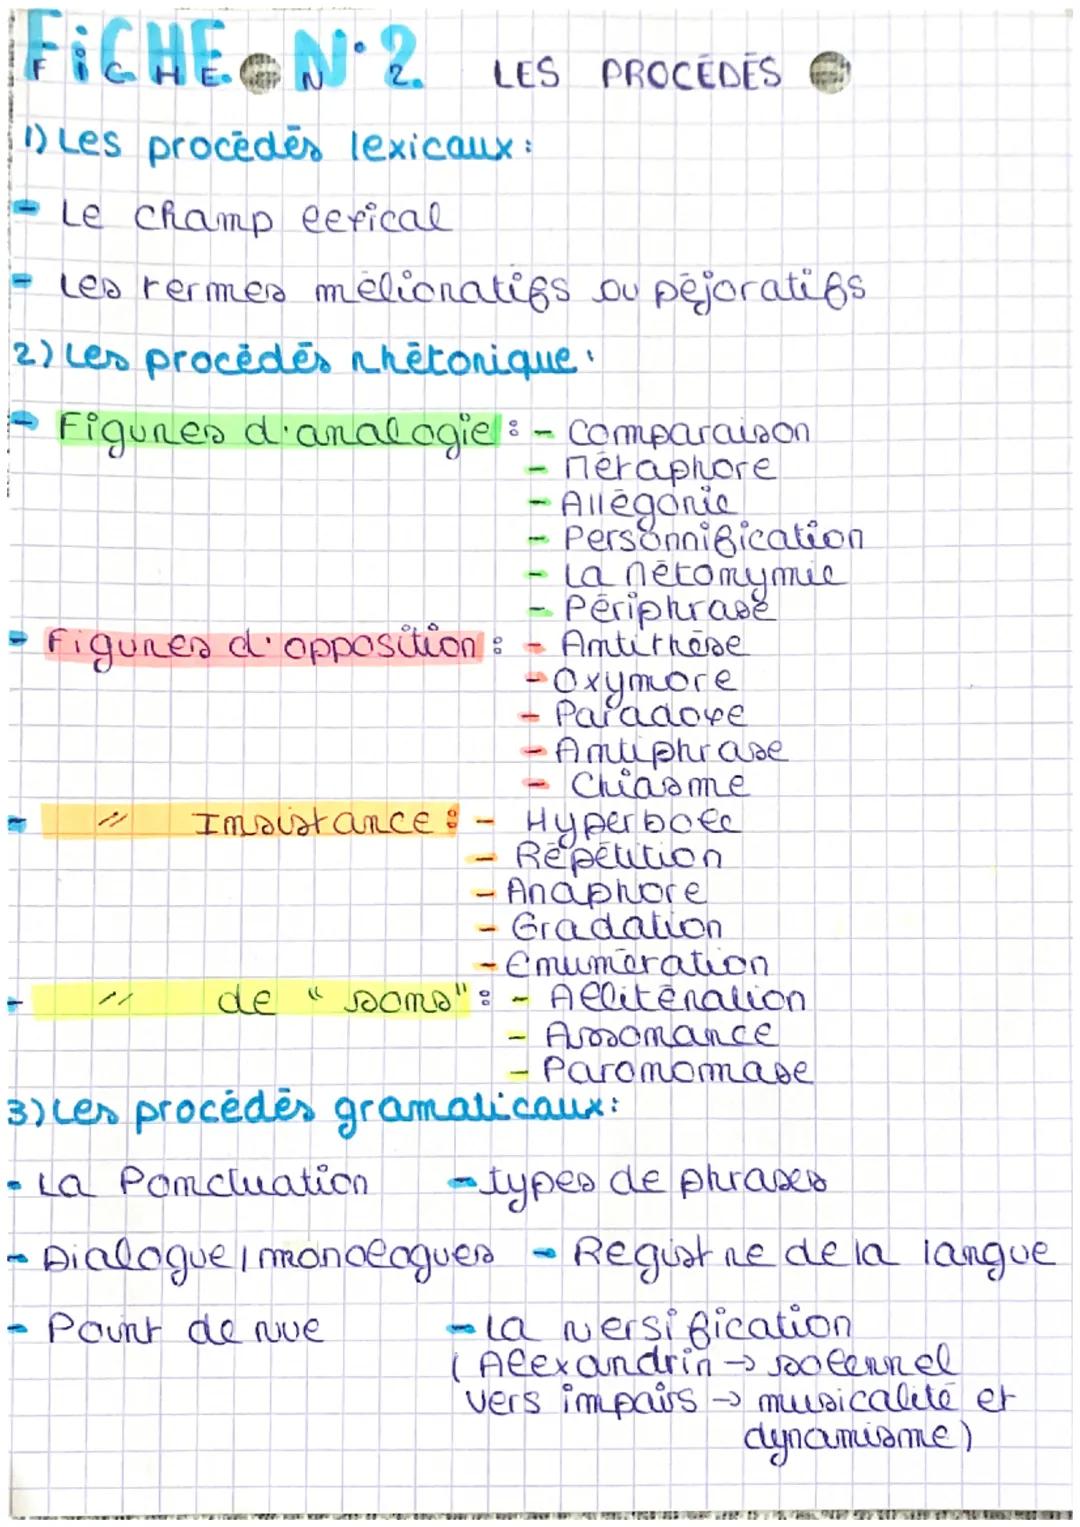 FiCHE N°2. LES PROCÉDÉS
F I C H E N 2
1) Les procédés lexicaux :
- Le champ lexical
- Les termes mélioratifs ou péjoratifs
2) Les procédés rhétorique :
- Figures d'analogie : - Comparaison
- Métaphore
- Allégorie
- Personnification
- La métonymie
- Périphrase
- Figures d'opposition : - Antithèse
- Oxymore
- Paradoxe
- Antiphrase
- Chiasme
- // Insistance : - Hyperbole
- Répétition
- Anaphore
- Gradation
- Enumération
- // de " sons" : - Allitération
- Assonance
- Paronomase
3) Les procédés gramaticaux :
- La Ponctuation - types de phrases
- Dialogue / monologues - Registre de la langue
- Point de vue - La versification
( Alexandrin → solennel
vers impairs → musicalité et
dynamisme )